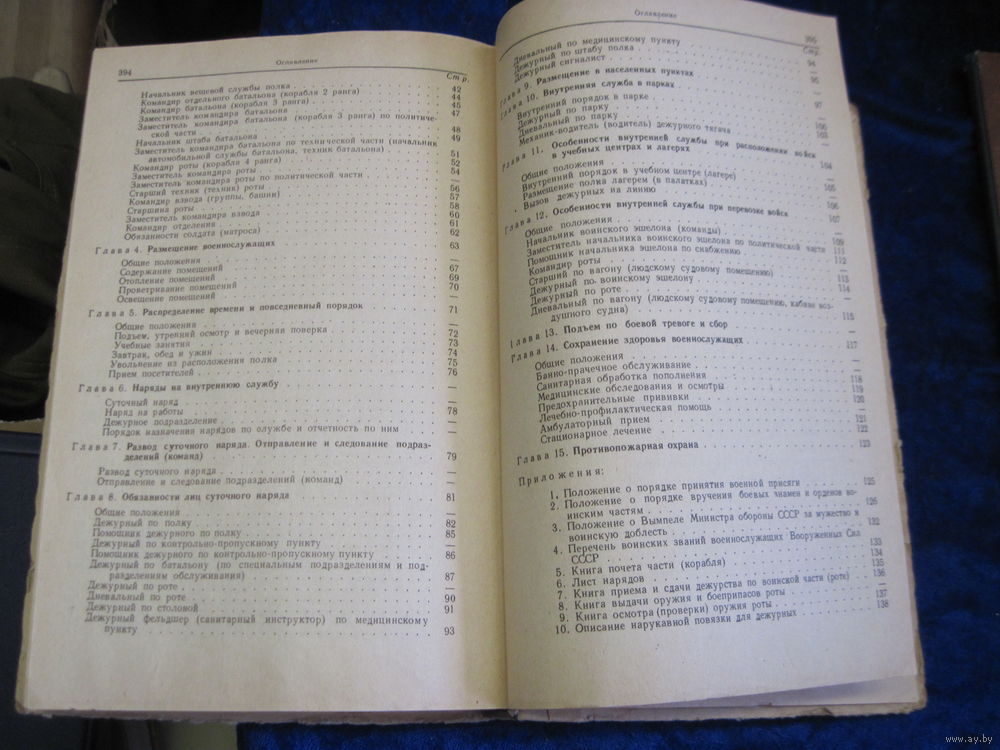 394
Оглавление
Стр.
Начальник вещевой службы полка 42
Командир отдельного батальона (корабля 2 ранга) 44
Командир батальона (корабля 3 ранга) 45
Заместитель командира батальона 47
Заместитель командира батальона (корабля 3 ранга) по политиче-
ской части 48
Начальник штаба батальона 49
Заместитель командира батальона по технической части (начальник
автомобильной службы батальона, техник батальона) 51
Командир роты (корабля 4 ранга) 52
Заместитель командира роты 54
Заместитель командира роты по политической части —
Старший техник (техник) роты 56
Командир взвода (группы, башни) 57
Старшина роты 58
Заместитель командира взвода 60
Командир отделения 61
Обязанности солдата (матроса) 62
Глава 4. Размещение военнослужащих 63
Общие положения —
Содержание помещений 67
Отопление помещений 69
Проветривание помещений 70
Освещение помещений —
Глава 5. Распределение времени и повседневный порядок 71
Общие положения —
Подъем, утренний осмотр и вечерняя поверка 72
Учебные занятия 73
Завтрак, обед и ужин 74
Увольнение из расположения полка 75
Прием посетителей 76
Глава 6. Наряды на внутреннюю службу —
Суточный наряд —
Наряд на работы 78
Дежурное подразделение —
Порядок назначения нарядов по службе и отчетность по ним —
Глава 7. Развод суточного наряда. Отправление и следование подраз-
делений (команд) 79
Развод суточного наряда —
Отправление и следование подразделений (команд) —
Глава 8. Обязанности лиц суточного наряда 81
Общие положения —
Дежурный по полку 82
Помощник дежурного по полку 85
Дежурный по контрольно-пропускному пункту —
Помощник дежурного по контрольно-пропускному пункту 86
Дежурный по батальону (по специальным подразделениям и под-
разделениям обслуживания) 87
Дежурный по роте —
Дневальный по роте 90
Дежурный по столовой 91
Дежурный фельдшер (санитарный инструктор) по медицинскому
пункту 93
Оглавление
395
Стр.
Дневальный по медицинскому пункту 94
Дежурный по штабу полка —
Дежурный сигналист 95
Глава 9. Размещение в населенных пунктах
Глава 10. Внутренняя служба в парках 97
Внутренний порядок в парке
Дежурный по парку 100
Дневальный по парку 103
Механик-водитель (водитель) дежурного тягача
Глава 11. Особенности внутренней службы при расположении войск
в учебных центрах и лагерях 104
Общие положения
Внутренний порядок в учебном центре (лагере)
Размещение полка лагерем (в палатках) 105
Вызов дежурных на линию 106
Глава 12. Особенности внутренней службы при перевозке войск 107
Общие положения
Начальник воинского эшелона (команды) 109
Заместитель начальника воинского эшелона по политической части 111
Помощник начальника эшелона по снабжению 112
Командир роты —
Старший по вагону (людскому судовому помещению) 113
Дежурный по воинскому эшелону 114
Дежурный по роте —
Дневальный по вагону (людскому судовому помещению, кабине воз-
душного судна) 115
Глава 13. Подъем по боевой тревоге и сбор
Глава 14. Сохранение здоровья военнослужащих 117
Общие положения —
Банно-прачечное обслуживание
Санитарная обработка пополнения 118
Медицинские обследования и осмотры 119
Предохранительные прививки 120
Лечебно-профилактическая помощь —
Амбулаторный прием 121
Стационарное лечение 122
Глава 15. Противопожарная охрана 123
Приложения:
1. Положение о порядке принятия военной присяги 125
2. Положение о порядке вручения боевых знамен и орденов во-
инским частям 126
3. Положение о Вымпеле Министра обороны СССР за мужество и
воинскую доблесть 132
4. Перечень воинских званий военнослужащих Вооруженных Сил
СССР 133
5. Книга почета части (корабля) 134
6. Лист нарядов 135
7. Книга приема и сдачи дежурства по воинской части (роте) 136
8. Книга выдачи оружия и боеприпасов роты —
9. Книга осмотра (проверки) оружия роты 137
10. Описание нарукавной повязки для дежурных 138
www.ay.by